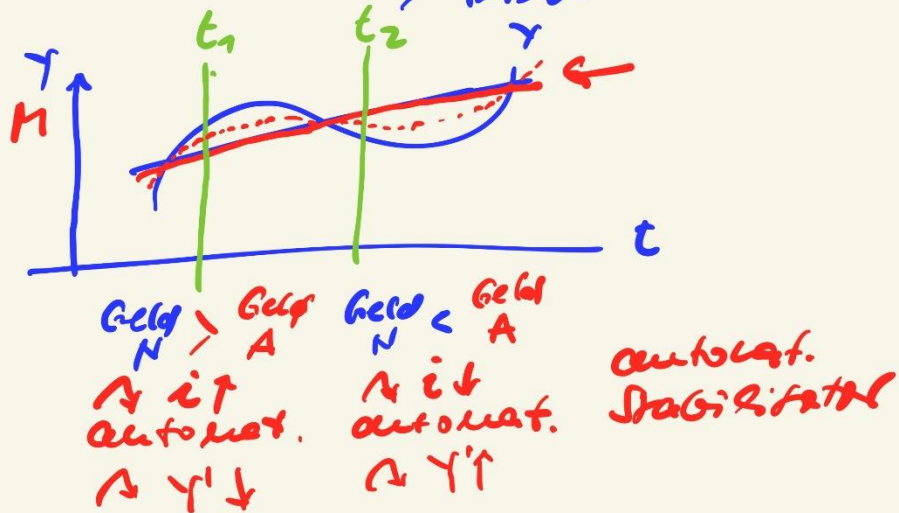 t1 t2 Y
Y
M
t
Geld N > Geld A
Geld N < Geld A
↷ i↑
↷ i↓
automat.
automat.
automat. Stabilisator
↷ Y' ↓
↷ Y'↑